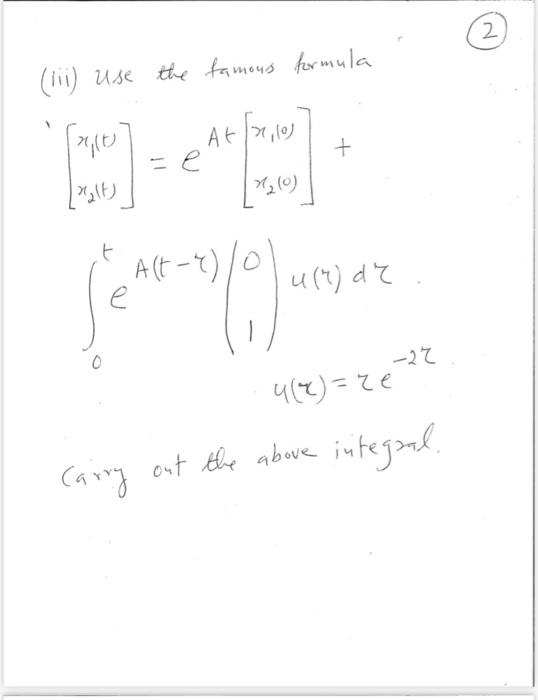 2
(iii) Use the famous formula
[x₁(t) x₂(t)] = e^{At} [x₁(0) x₂(0)] +
∫₀ᵗ e^{A(t-τ)} (0 1) u(τ) dτ.
u(τ) = τe^{-2τ}.
Carry out the above integral.